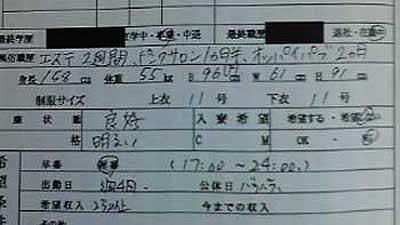 最終学歴 在学中・卒業・中退 最終職歴 退社・在職中
風俗職歴 エステ2週間、ピンクサロン1ヵ月半、オッパイパブ2ヵ月
身長 158 cm 体重 55 kg B. 96 W 61 H 91
制服サイズ 上衣 11 号 下衣 11 号
康状態 良好 入寮希望 希望する・希望
格 明るい C M OK・
早番 (17:00 ~ 24:00.)
出勤日 週4日 公休日 バラバラ
希望収入 今までの収入
その他